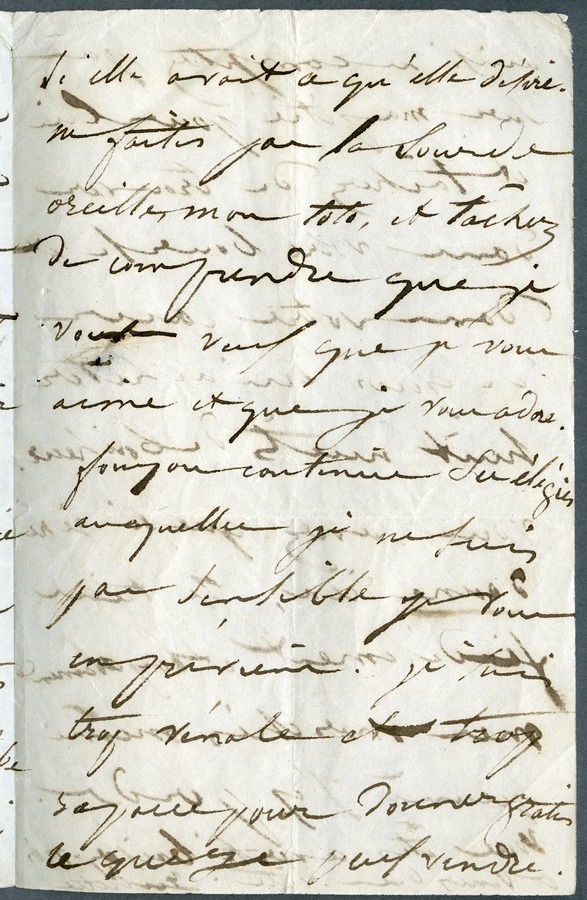 Si elle avait ce qu'elle désire.
ne faites pas la Sourde
oreille, mon toto, et tâchez
de comprendre que je
veux que je vous
aime et que je vous adore.
Fouyou continue ses élégies
auxquelles je ne suis
pas sensible je vous
en préviens. je suis
trop vénale et trop
rapace pour donner gratis
ce que je puis vendre.